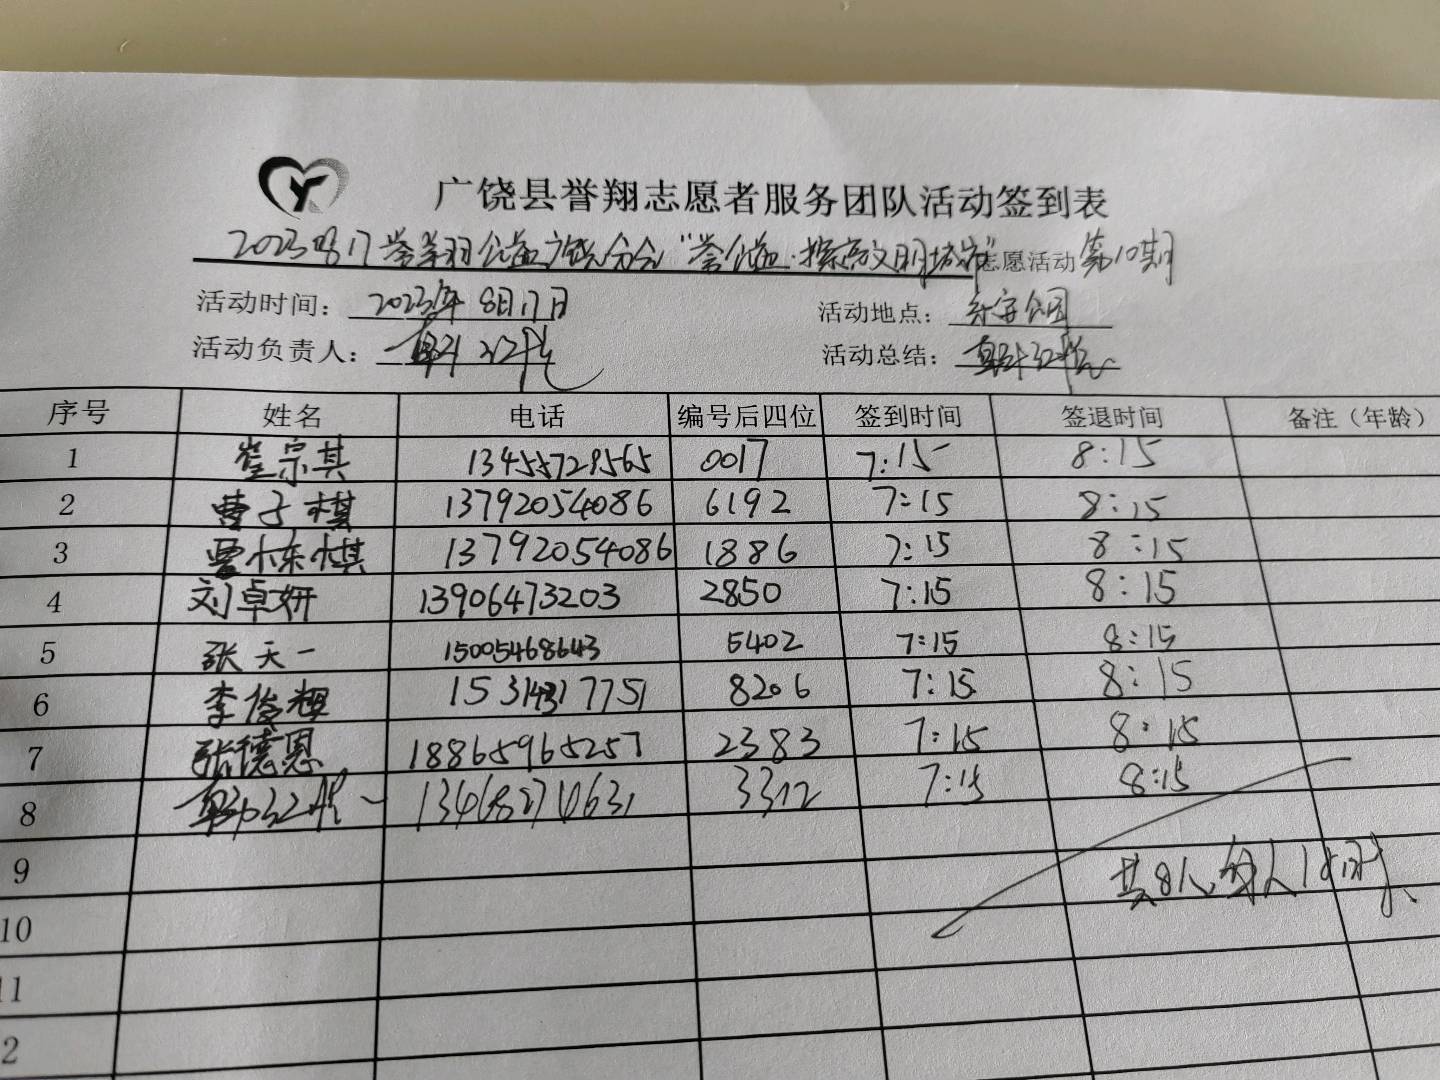 广饶县誉翔志愿者服务团队活动签到表
2023 8月17 誉翔公益广饶分会"誉公益·探高文明城市"志愿活动 第10期
活动时间: 2023年8月17日 活动地点: 公园
活动负责人: 活动总结:
序号 姓名 电话 编号后四位 签到时间 签退时间 备注（年龄）
1 崔宗其 13455729565 0017 7:15 8:15
2 曹子棋 13792054086 6192 7:15 8:15
3 曹栋棋 13792054086 1886 7:15 8:15
4 刘卓妍 13906473203 2850 7:15 8:15
5 张天一 15005468643 5402 7:15 8:15
6 李俊 8206 7:15 8:15
7 张德恩 18865965257 2383 7:15 8:15
8 3312 7:15 8:15
9 共8人,每人1小时
10
11
2